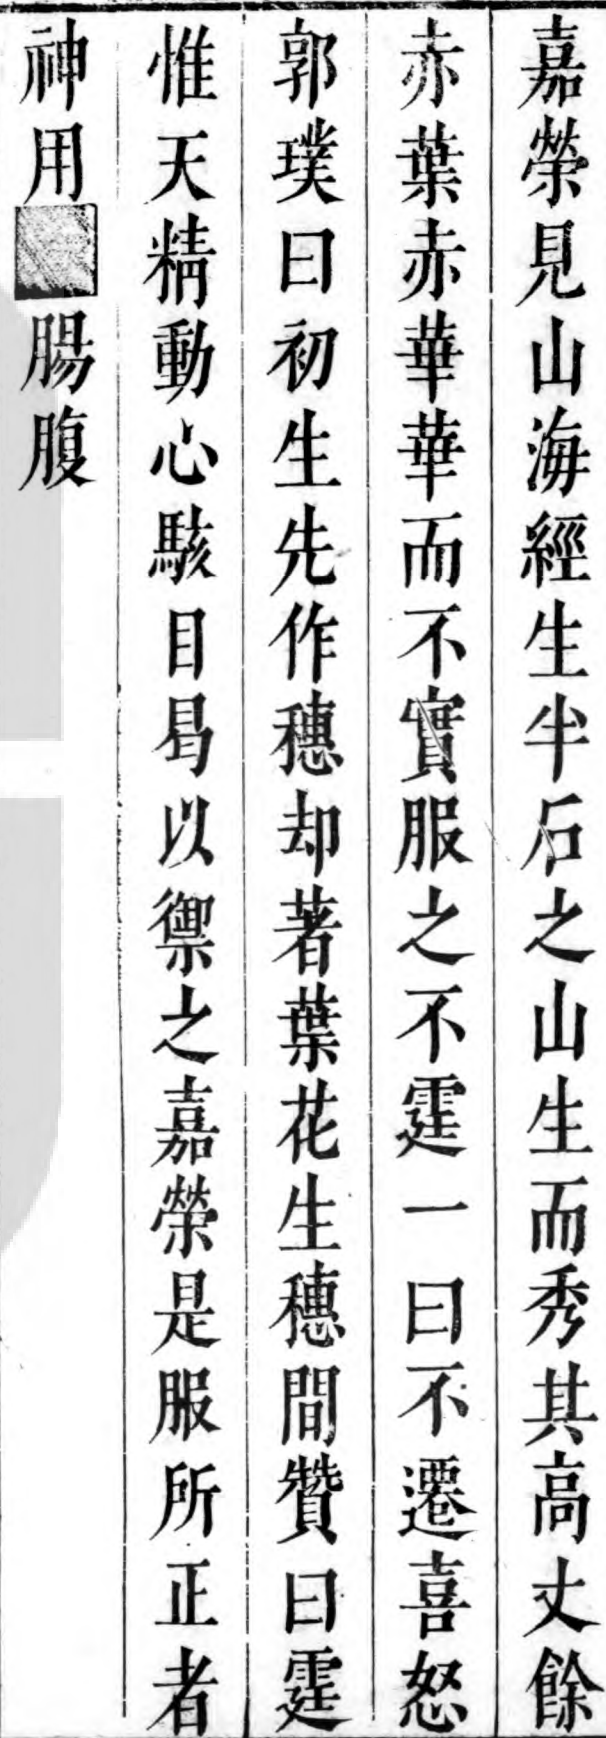 嘉榮見山海經生半石之山生而秀其高丈餘
赤葉赤華華而不實服之不霆一曰不遷喜怒
郭璞曰初生先作穗却著葉花生穗間贊曰霆
惟天精動心駭目曷以禦之嘉榮是服所正者
神用腸腹